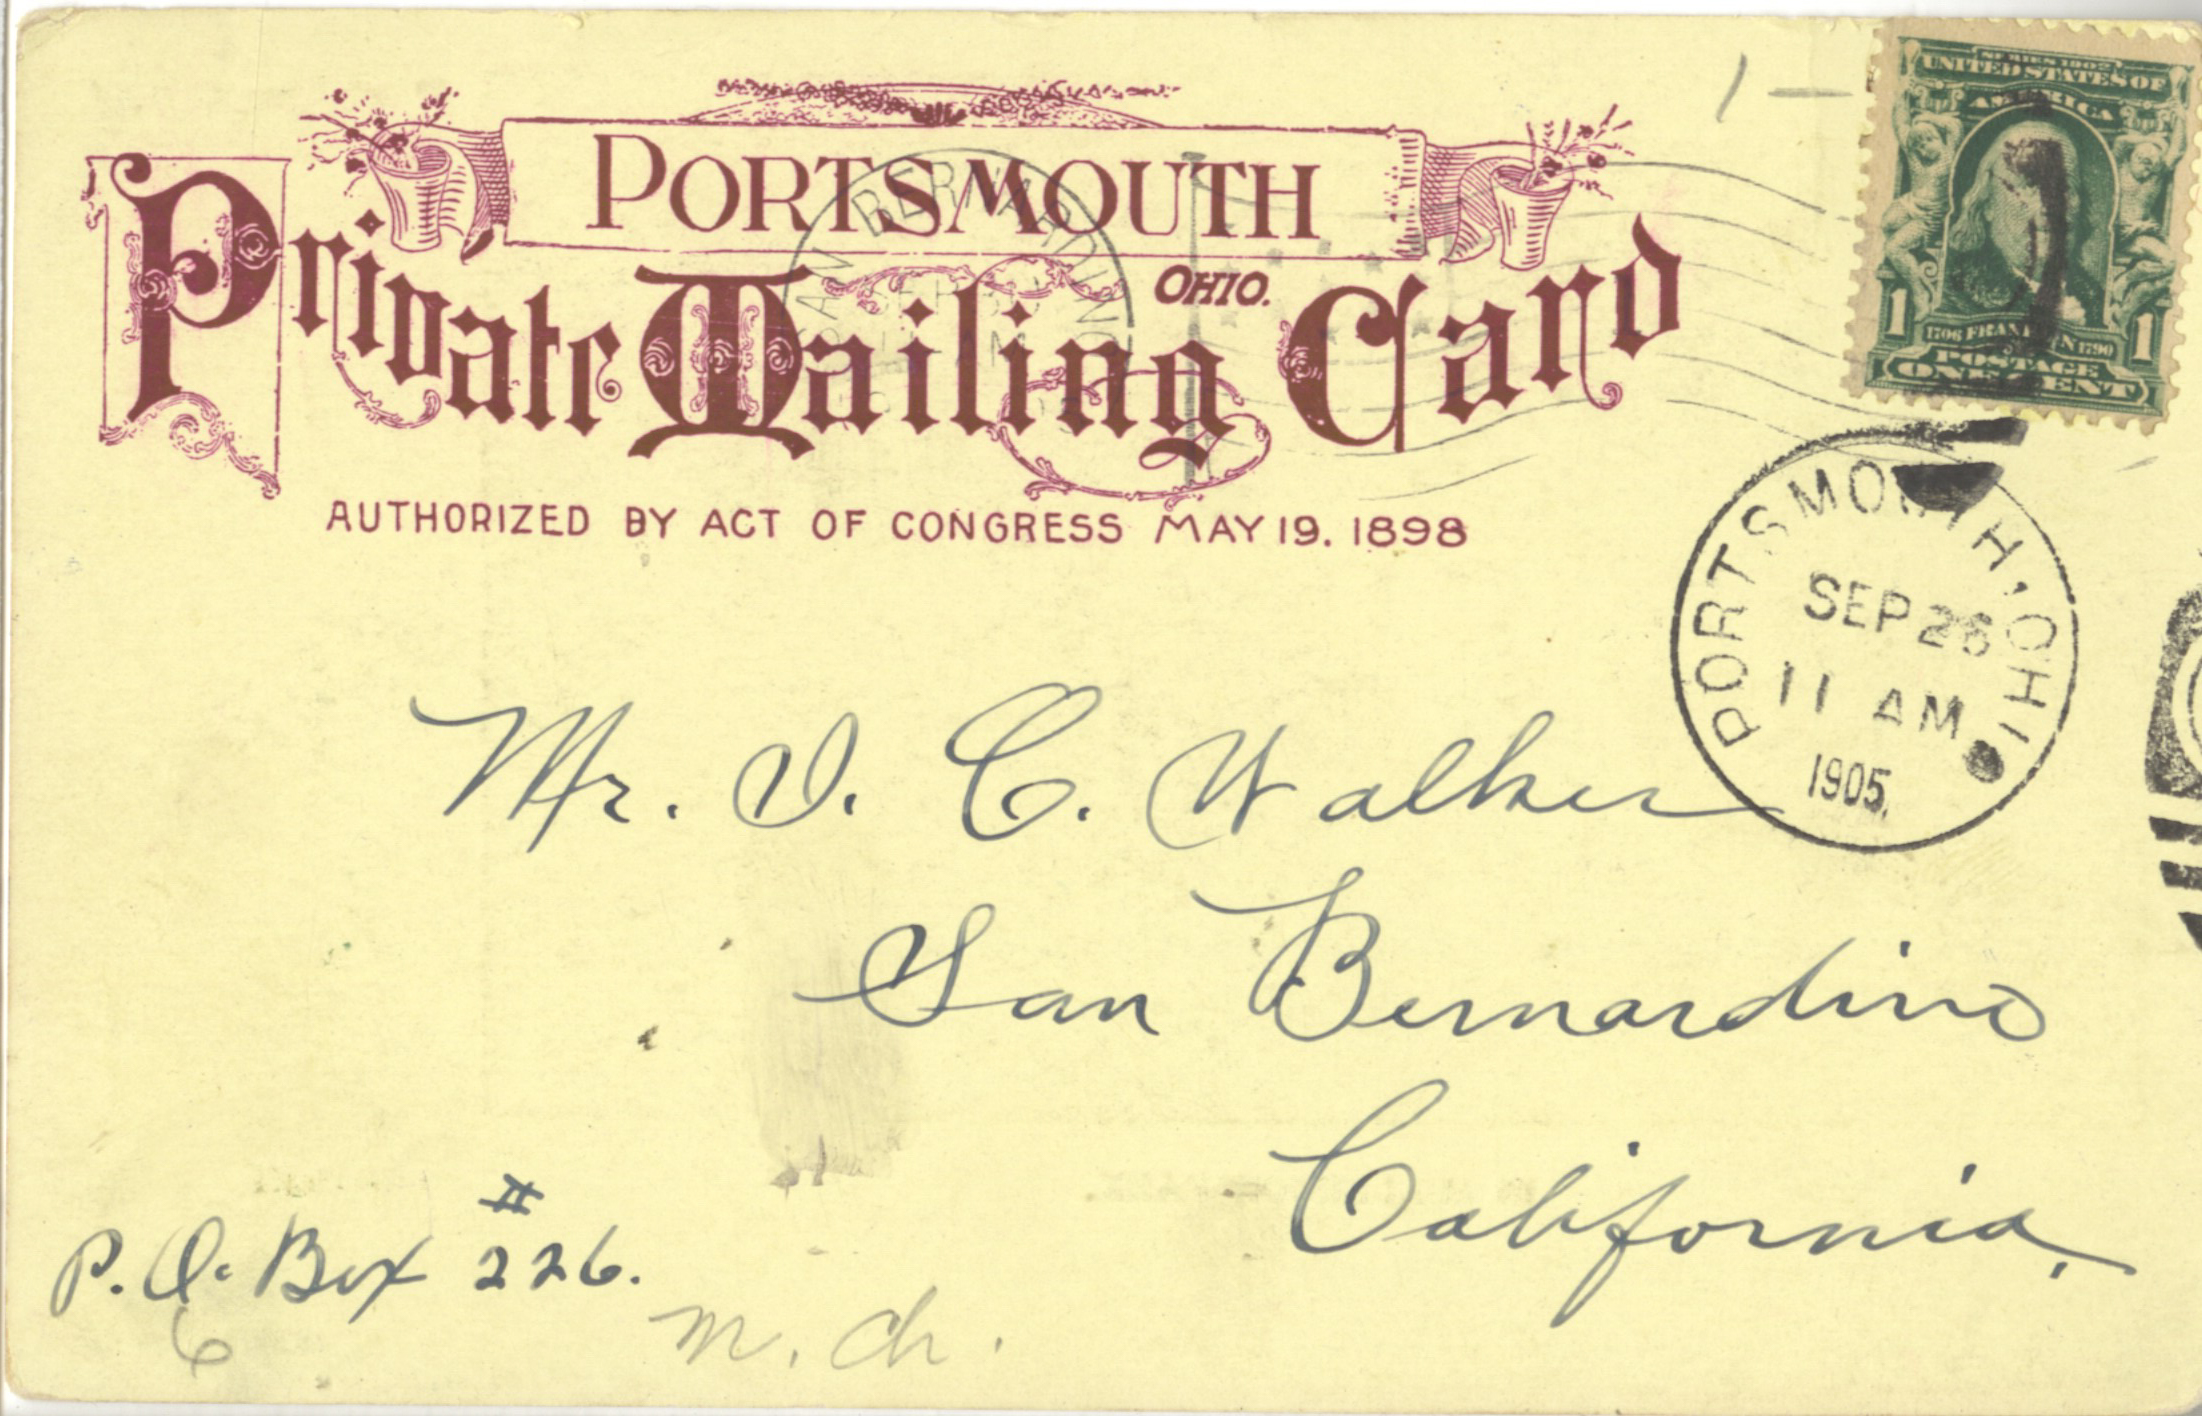 PORTSMOUTH
OHIO.
Private Mailing Card
AUTHORIZED BY ACT OF CONGRESS MAY 19, 1898
1 —
SERIES 1902
UNITED STATES OF
AMERICA
1 1706 FRANKLIN 1790 1
POSTAGE
ONE CENT
SAN BERNARDINO
SEP
AM
PORTSMOUTH, OHIO
SEP 26
11 AM
1905.
Mr. I. C. Walker
San Bernardino
California.
P.O. Box # 226.
6
m. ch.